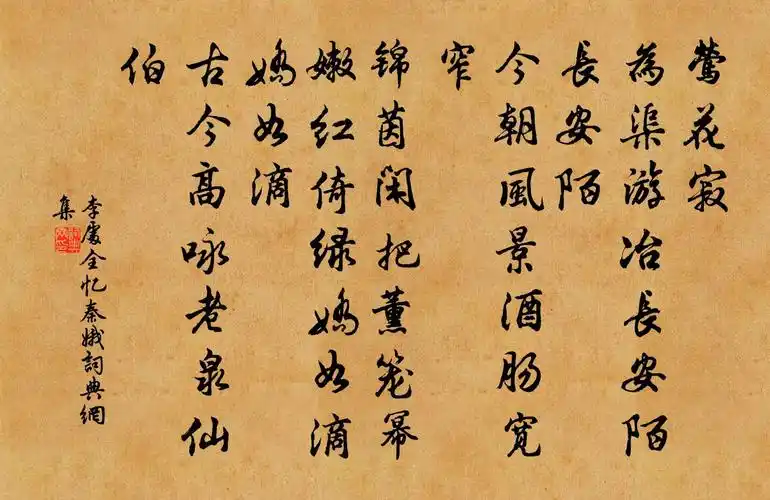 莺花寂
為渠游冶長安陌
長安陌
今朝風景酒肠寬
窄
锦茵閑把薰笼幂
嫩红倚緑嬌如滴
嬌如滴
古今高咏老泉仙
伯
李處全忆秦娥詞典網
集